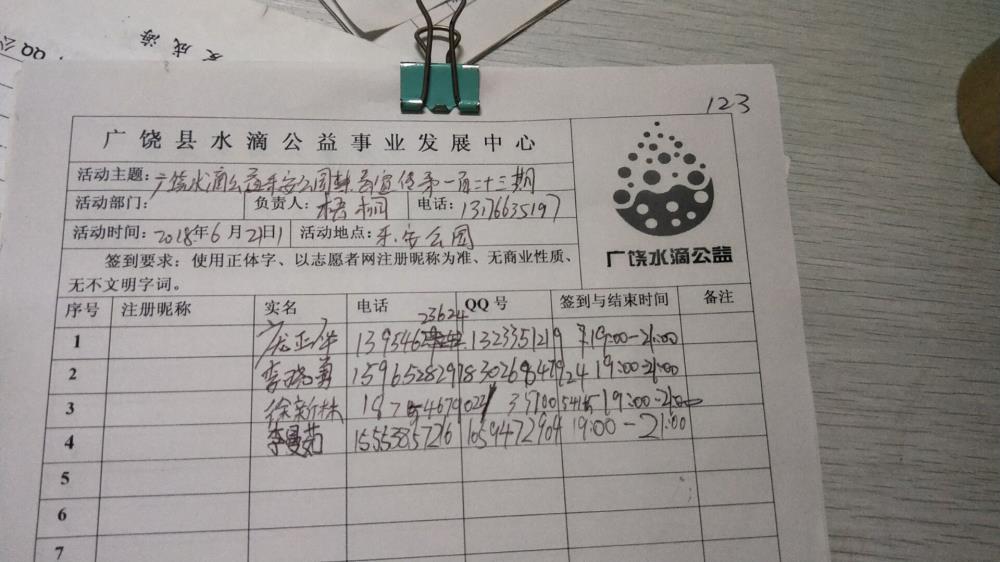 123
广饶县水滴公益事业发展中心
活动主题：广饶水滴公益乐安公园禁毒宣传第一百二十三期
活动部门： 负责人：梧桐 电话：13176635197
活动时间：2018年6月21日 活动地点：乐安公园
广饶水滴公益
签到要求：使用正体字、以志愿者网注册昵称为准、无商业性质、
无不文明字词。
序号 注册昵称 实名 电话 QQ号 签到与结束时间 备注
23624
1 1323351219 19:00-21:00
2 李晓勇 15965282971 830268479 19:00-21:00
3 徐新林 19:00-21:00
4 李曼茹 15553857216 1059472904 19:00-21:00
5
6
7